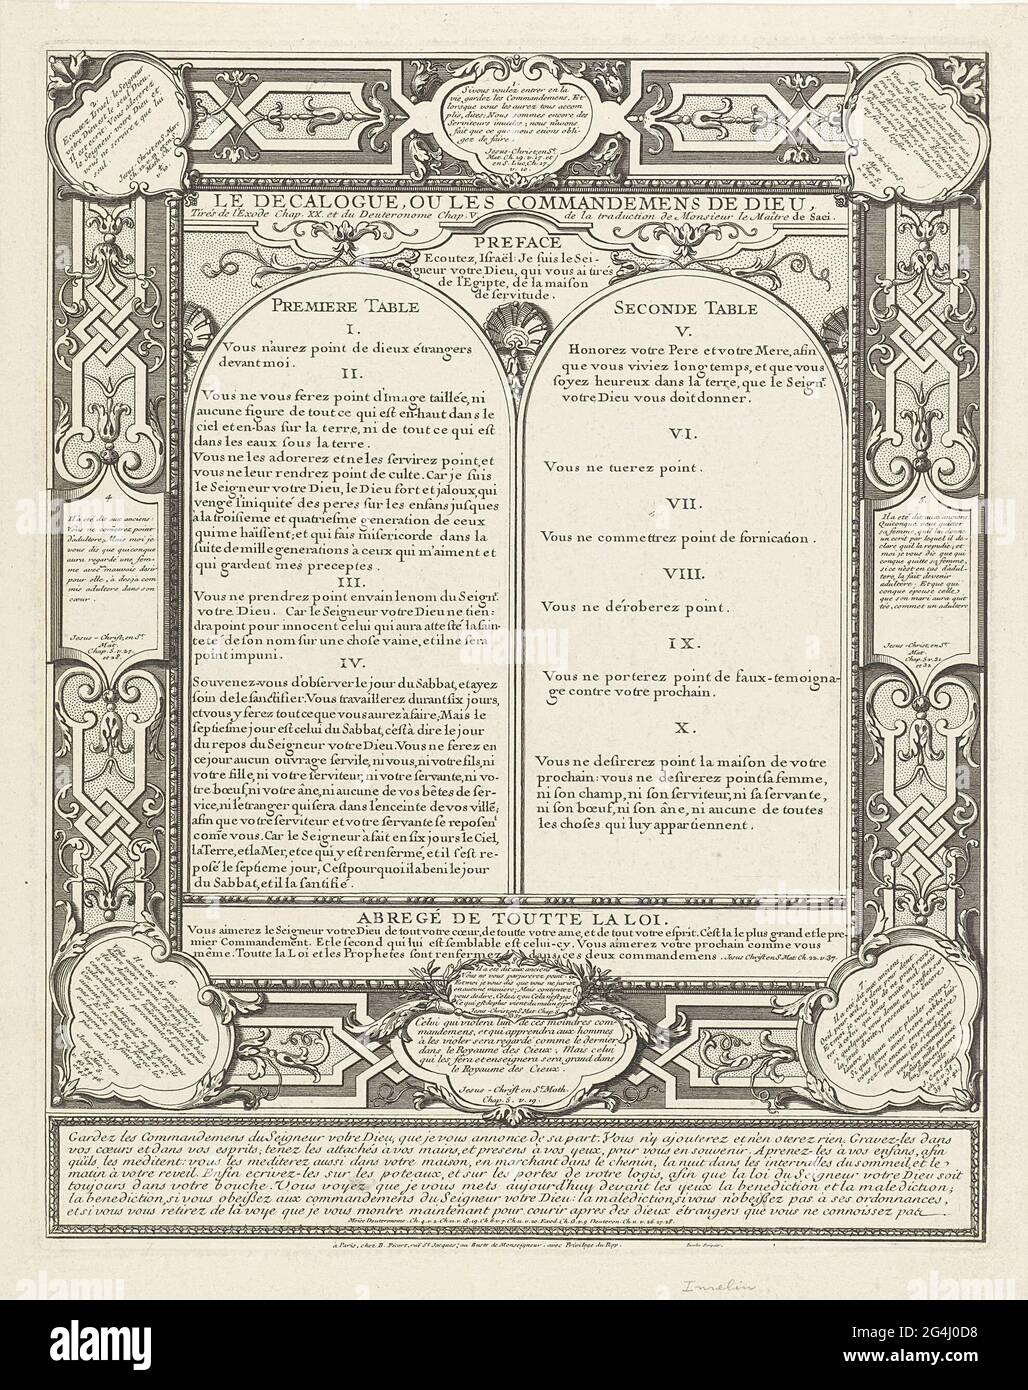 1
Si vous voulez entrer en la
vie, gardez les Commandemens. Et
lorsque vous les aurez tous accom
plis, dites: Nous sommes encore des
Serviteurs inutiles; nous n'avons
fait que ce que nous etions obli-
gez de faire.
Jesus-Christ, en St.
Mat. Ch. 19. v. 17. et
en S. Luc, Ch. 17.
v. 10.
2
Ecoutez, Israel, le Seigneur
votre Dieu est le seul Dieu.
LE DECALOGUE, OU LES COMMANDEMENS DE DIEU,
Tirés de l'Exode Chap. XX. et du Deuteronome Chap. V. de la traduction de Monsieur le Maître de Saci.
PREFACE
Ecoutez, Israël: Je suis le Sei-
gneur votre Dieu, qui vous ai tirés
de l'Egipte, de la maison
de servitude.
PREMIERE TABLE
I.
Vous n'aurez point de dieux étrangers
devant moi.
II.
Vous ne vous ferez point d'Image taillée, ni
aucune figure de tout ce qui est en-haut dans le
ciel et en-bas sur la terre, ni de tout ce qui est
dans les eaux sous la terre.
Vous ne les adorerez et ne les servirez point, et
vous ne leur rendrez point de culte. Car je suis
le Seigneur votre Dieu, le Dieu fort et jaloux, qui
venge l'iniquité des peres sur les enfans jusques
à la troisieme et quatriesme generation de ceux
qui me haïssent; et qui fais misericorde dans la
suite de mille generations à ceux qui m'aiment et
qui gardent mes preceptes.
III.
Vous ne prendrez point en vain le nom du Seignr.
votre Dieu. Car le Seigneur votre Dieu ne tien=
dra point pour innocent celui qui aura attesté la sain-
teté de son nom sur une chose vaine, et il ne sera
point impuni.
IV.
Souvenez-vous d'observer le jour du Sabbat, et ayez
soin de le sanctifier. Vous travaillerez durant six jours,
et vous y ferez tout ce que vous aurez à faire; Mais le
septiesme jour est celui du Sabbat, c'est à dire le jour
du repos du Seigneur votre Dieu. Vous ne ferez en
ce jour aucun ouvrage servile, ni vous, ni votre fils, ni
votre fille, ni votre serviteur, ni votre servante, ni vo-
tre bœuf, ni votre âne, ni aucune de vos bêtes de ser-
vice, ni l'etranger qui sera dans l'enceinte de vos villes;
afin que votre serviteur et votre servante se reposent
come vous. Car le Seigneur a fait en six jours le Ciel,
la Terre, et la Mer, et ce qui y est renfermé, et il s'est re-
posé le septieme jour; C'est pourquoi il a beni le jour
du Sabbat, et il l'a santifié.
SECONDE TABLE
V.
Honorez votre Pere et votre Mere, afin
que vous viviez long temps, et que vous
soyez heureux dans la terre, que le Seignr.
votre Dieu vous doit donner.
VI.
Vous ne tuerez point.
VII.
Vous ne commettrez point de fornication.
VIII.
Vous ne déroberez point.
IX.
Vous ne porterez point de faux-temoigna-
ge contre votre prochain.
X.
Vous ne desirerez point la maison de votre
prochain: vous ne desirerez point sa femme,
ni son champ, ni son serviteur, ni sa servante,
ni son bœuf, ni son âne, ni aucune de toutes
les choses qui luy appartiennent.
4.
Il a été dit aux anciens:
Vous ne cometrez point
d'adultere, Mais moi je
vous dis que quiconque
aura regardé une fem-
me avec mauvais desir
pour elle, a desja com
mis adultere dans son
cœur.
Jesus-Christ, en St.
Mat.
Chap. 5. v. 27.
et 28.
5.
Il a eté dit aux anciens:
Quiconque veut quitter
sa femme, qu'il lui donne
un ecrit par lequel il dé-
clare qu'il la repudie; et
moi je vous dis que qui-
conque quitte sa femme,
si ce n'est en cas d'adul-
tere, la fait devenir
adultere: Et que qui
conque épouse celle
que son mari aura quit
tée, commet un adultere
Jesus-Christ, en St.
Mat.
Chap. 5. v. 31
et 32
ABREGÉ DE TOUTTE LA LOI.
Vous aimerez le Seigneur votre Dieu de tout votre cœur, de toutte votre ame, et de tout votre esprit. C'est la le plus grand et le pre-
mier Commandement. Et le second qui lui est semblable est celui-cy. Vous aimerez votre prochain comme vous
même. Toutte la Loi et les Prophetes sont renfermez dans ces deux commandemens. Jesus Christ en S. Mat. Ch. 22. v. 37.
Il a été dit aux anciens
Vous ne vous parjurerez point:
Et moi je vous dis que vous ne juriez
en aucune maniere; Mais contentez
vous de dire, Cela est, ou Cela n'est pas
Ce qui est de plus vient du malin esprit
Jesus-Christ en S. Mat. Chap. 5.
Celui qui violera l'un de ces moindres com-
mandemens, et qui apprendra aux hommes
à les violer sera regardé comme le dernier
dans le Royaume des Cieux; Mais celui
qui les fera et enseignera sera grand dans
le Royaume des Cieux.
Jesus-Christ en St. Math.
Chap. 5. v. 19.
Gardez les Commandemens du Seigneur votre Dieu, que je vous annonce de sa part. Vous n'y ajouterez et n'en oterez rien. Gravez-les dans
vos cœurs et dans vos esprits; tenez les attachés à vos mains, et presens à vos yeux, pour vous en souvenir. Aprenez-les à vos enfans, afin
qu'ils les méditent: vous les mediterez aussi dans votre maison, en marchant dans le chemin, la nuit dans les intervalles du sommeil, et le
matin à votre reveil. Enfin ecrivez-les sur les poteaux, et sur les portes de votre logis, afin que la loi du Seigneur votre Dieu soit
toujours dans votre bouche. Vous voyez que je vous mets aujourd'huy devant les yeux la benediction et la malediction;
la benediction, si vous obeissez aux commandemens du Seigneur votre Dieu: la malediction, si vous n'obeissez pas à ses ordonnances,
et si vous vous retirez de la voye que je vous montre maintenant pour courir apres des dieux étrangers que vous ne connoissez pas.
à Paris, chez B. Picart, rue St. Jacques, au Buste de Monseigneur. avec Privilege du Roy.
Inselin
alamy
Image ID: 2G4J0D8
www.alamy.com